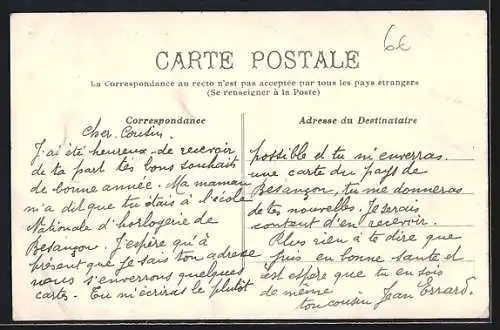 6c
CARTE POSTALE
La Correspondance au recto n'est pas acceptée par tous les pays étrangers
(Se renseigner à la Poste)
Correspondance
Cher Cousin.
J'ai été heureux de recevoir
de ta part tes bons souhaits
de bonne année. Ma maman
m'a dit que tu étais à l'école
Nationale d'horlogerie de
Besançon. J'espère qu'à
présent que je sais ton adresse
nous s'enverrons quelques
cartes. Tu m'écriras le plutôt
Adresse du Destinataire
possible et tu m'enverras
une carte du pays de
Besançon, tu me donneras
de tes nouvelles. Je serais
content d'en recevoir.
Plus rien à te dire que
je suis en bonne santé et
est espère que tu en sois
de même
ton cousin Jean Errard.